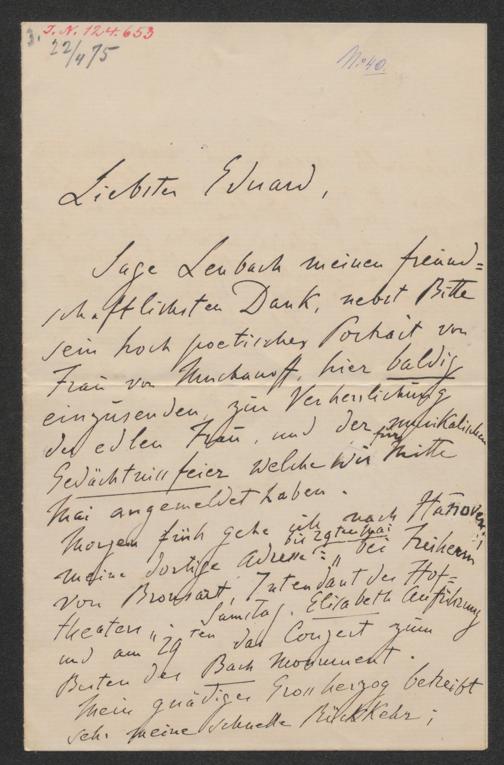 3. I. N. 124.653
22/4 75
No 40.
Liebster Eduard,
Sage Lenbach meinen freund=
schaftlichsten Dank, nebst Bitte
sein hoch poetisches Portrait von
Frau von Muchanoff, hier baldig
einzusenden, zur Verherrlichung
der edlen Frau, und der musikalischen
Gedächtnissfeier welche wir für Mitte
Mai angemeldet haben.
Morgen früh gehe ich nach Hanover;
meine dortige Adresse bis 29ten Mai: „bei Freiherrn
von Bronsart, Intendant des Hof=
theaters„. Samstag, Elisabeth Aufführung
und am 29ten das Conzert zum
Besten des Bach Monument.
Mein gnädiger Grossherzog betreibt
sehr meine schnelle Rückkehr;